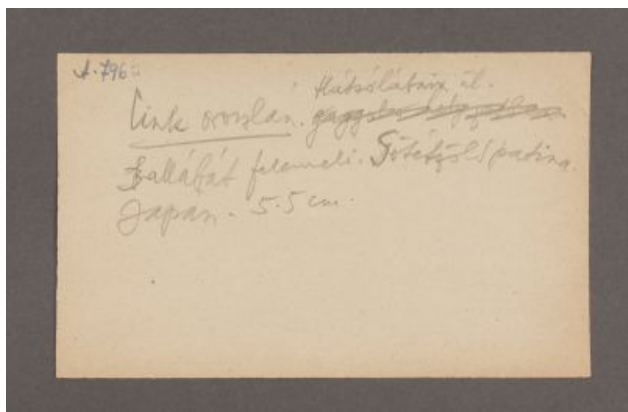 A.796
Hátsólábain ül.
Cink oroszlán.
Ballábát felemeli. Sötétzöld patina.
Japán. 5.5 cm.